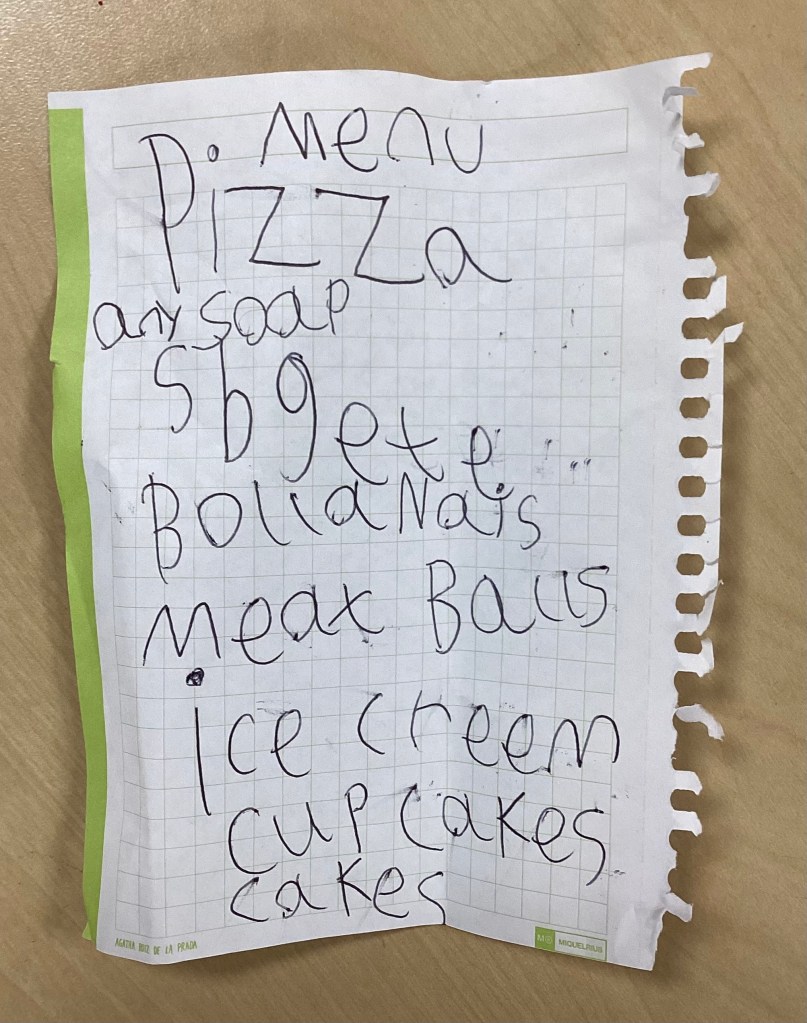 Menu
Pizza
any soap
Sbgete
BollaNais
Meat Balls
ice creem
cup cakes
cakes
AGATHA RUIZ DE LA PRADA
M® MIQUELRIUS